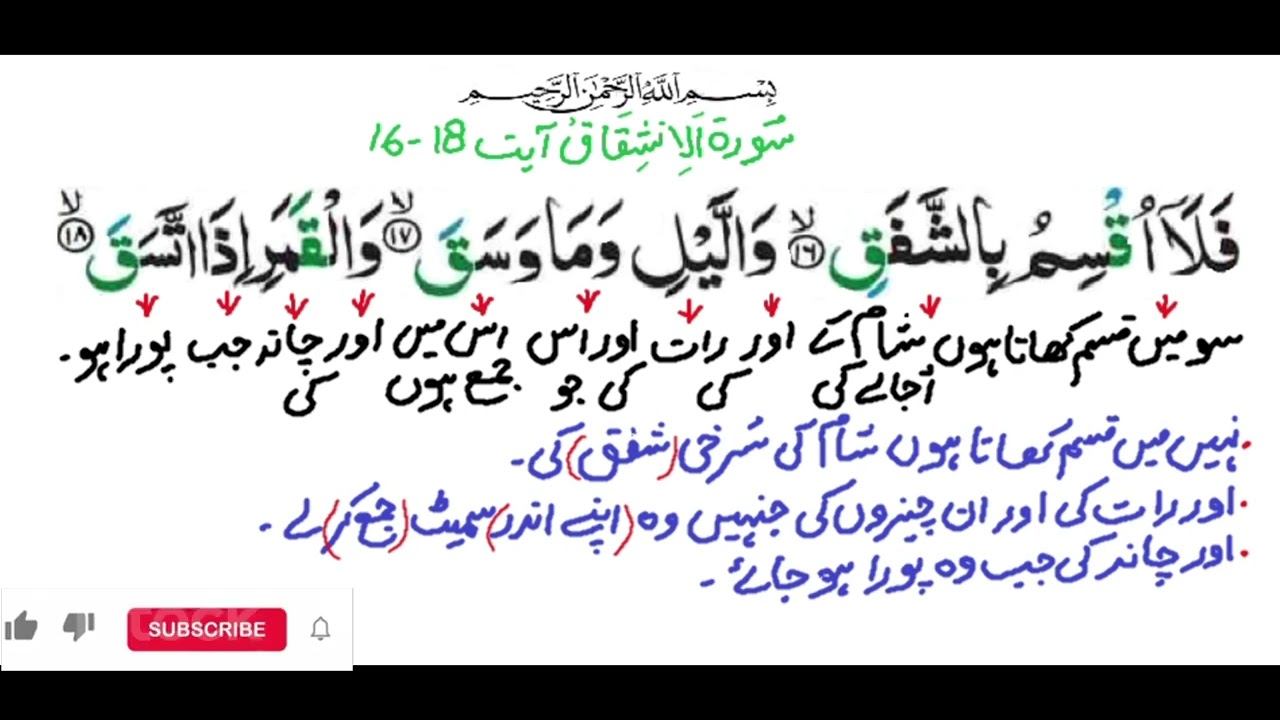 بِسْمِ اللهِ الرَّحْمٰنِ الرَّحِيْمِ
سُورة اَلِانشِقَاقُ آیت 18-16
فَلَآ اُقْسِمُ بِالشَّفَقِ ۙ﴿۱۶﴾ وَالَّيْلِ وَمَا وَسَقَ ۙ﴿۱۷﴾ وَالْقَمَرِ اِذَا اتَّسَقَ ۙ﴿۱۸﴾
سو میں قسم کھاتا ہوں شام کے اور رات اور اس اس میں اور چاند جب پورا ہو۔
اُجالے کی کی کی جو جمع ہوں کی
۔نہیں میں قسم کھاتا ہوں شام کی سُرخی (شفق) کی۔
۔اور رات کی اور ان چیزوں کی جنہیں وہ (اپنے اندر) سمیٹ (جمع کر) لے۔
۔اور چاند کی جب وہ پورا ہو جائے۔
SUBSCRIBE